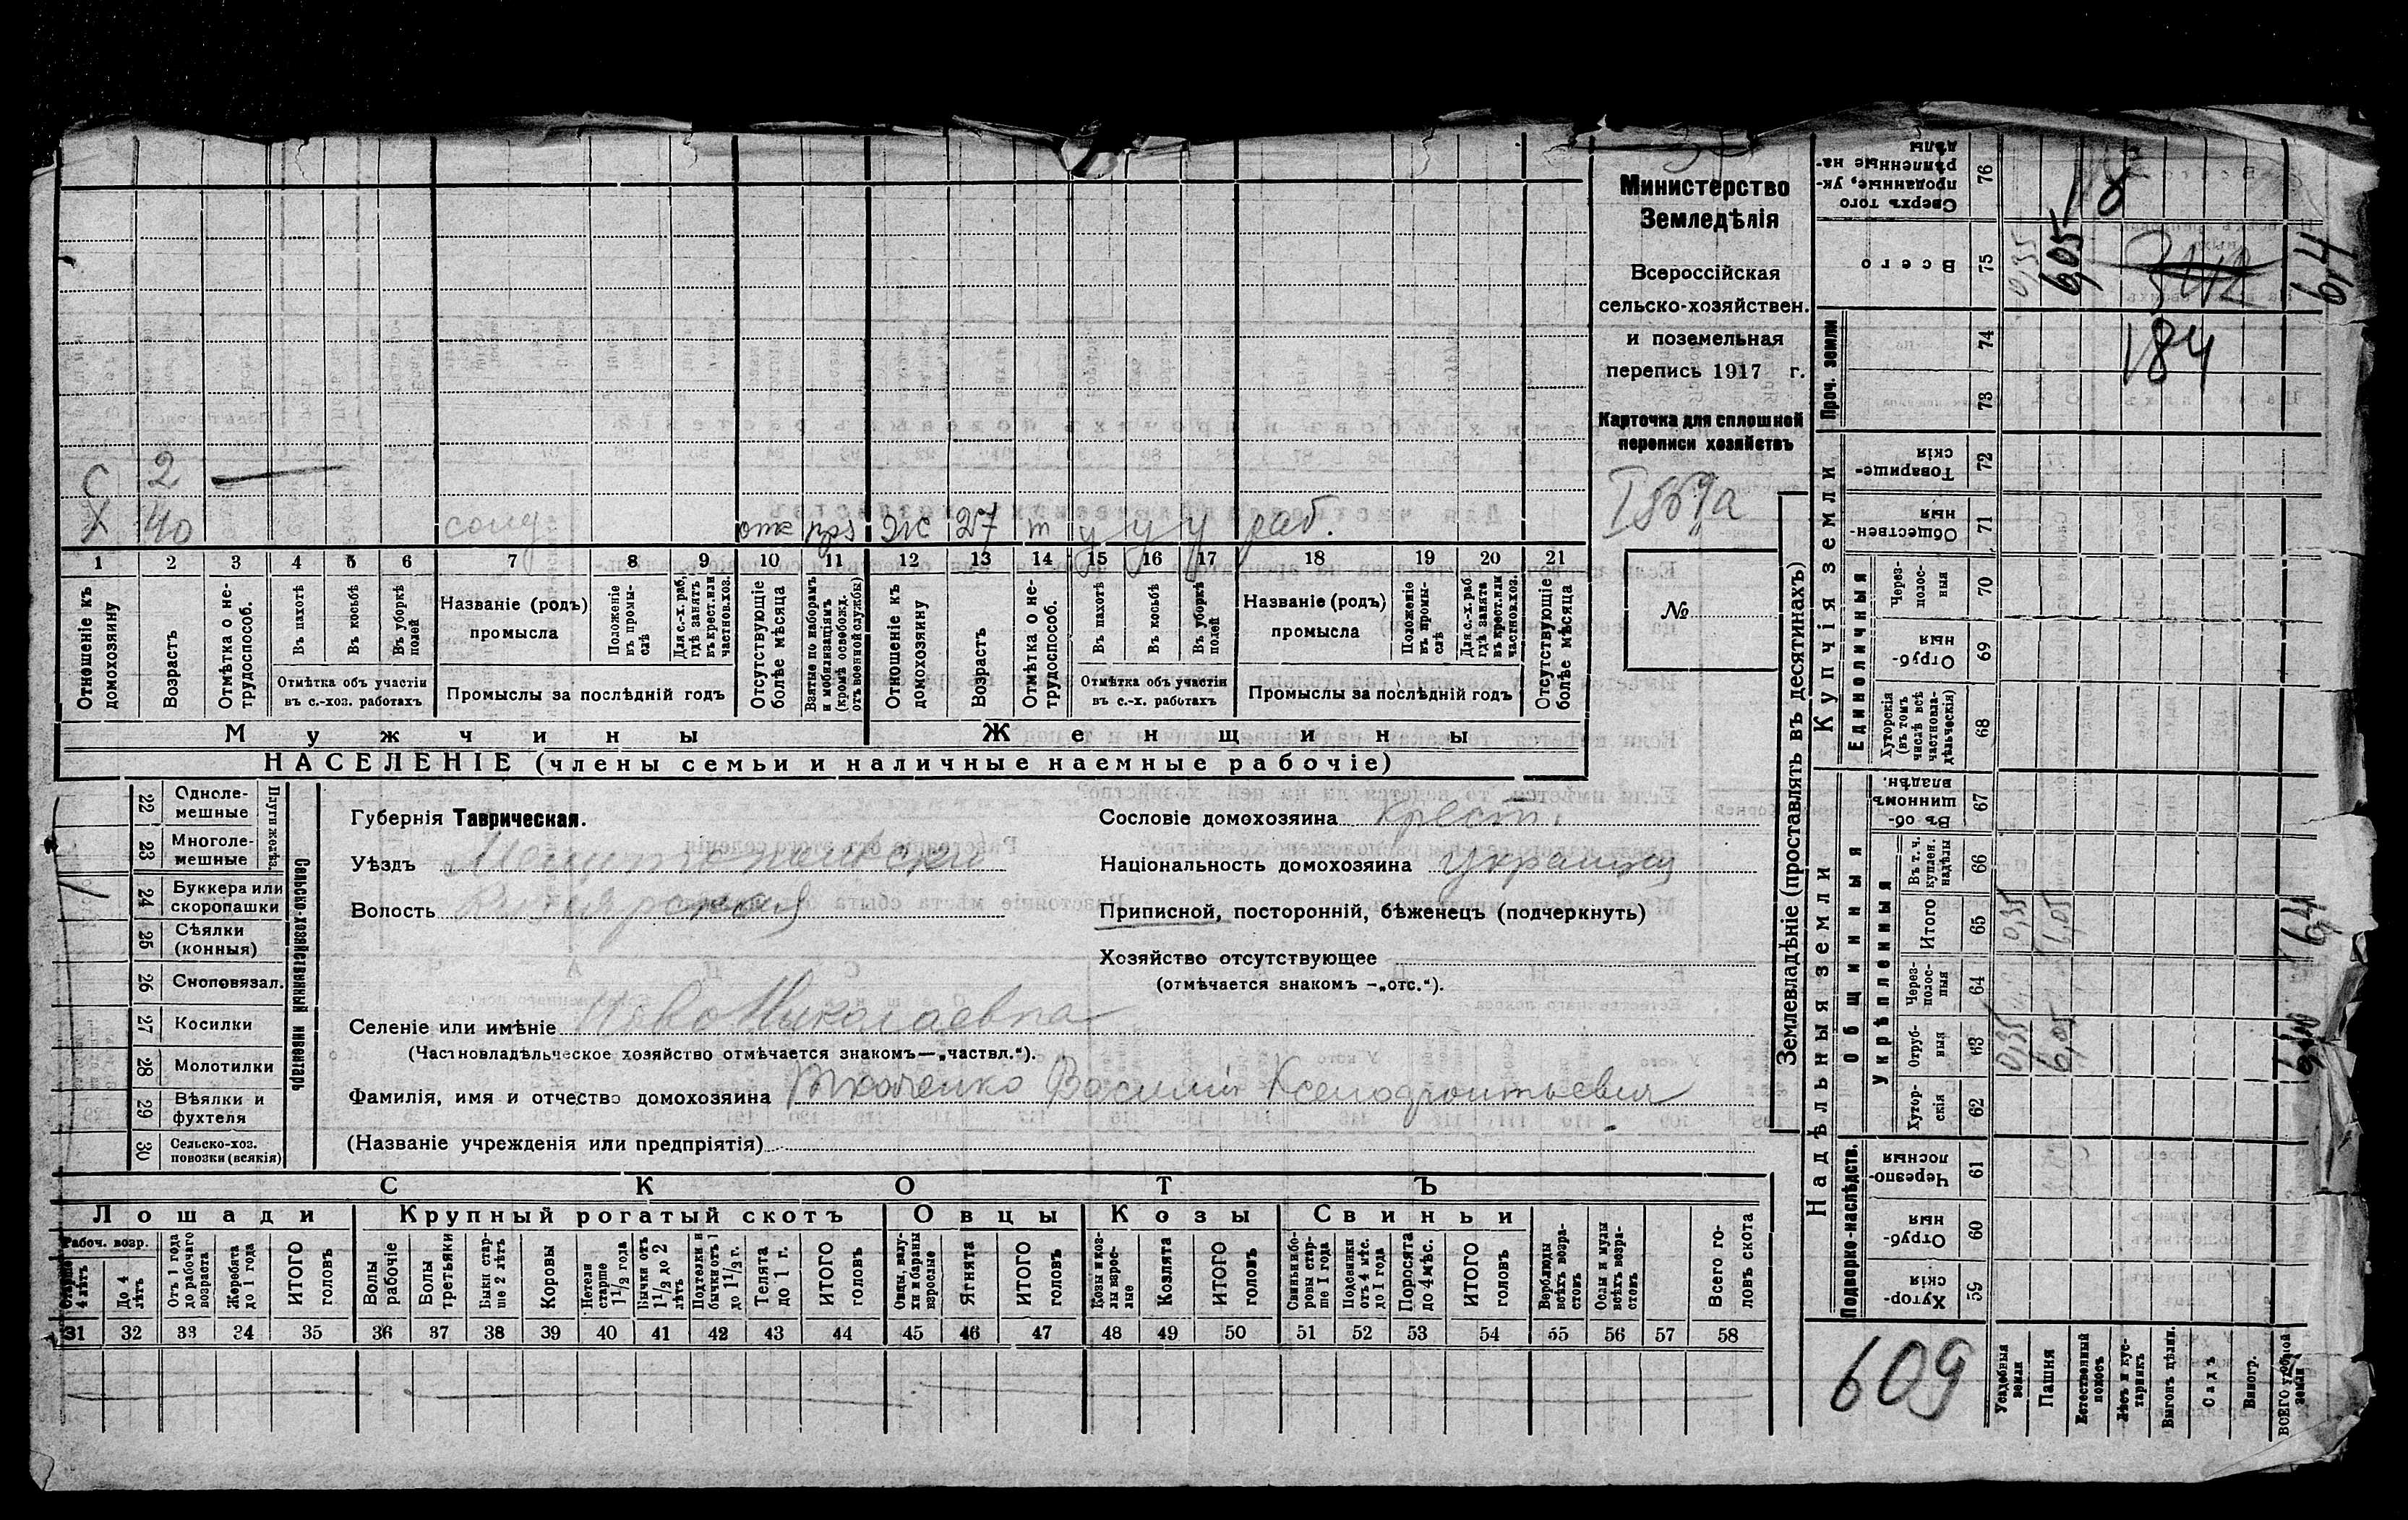 Министерство
Земледѣлія
Всероссійская
сельско-хозяйствен.
и поземельная
перепись 1917 г.
Карточка для сплошной
переписи хозяйствъ
№
С 2
Х 40 солд отс Ж 27 т у у у раб.
1 2 3 4 5 6 7 8 9 10 11 12 13 14 15 16 17 18 19 20 21
Отношеніе къ домохозяину
Возрастъ
Отмѣтка о не-трудоспособ.
Въ пахотѣ
Въ косьбѣ
Въ уборкѣ полей
Отмѣтка объ участіи
въ с.-хоз. работахъ
Названіе (родъ)
промысла
Положеніе въ промы-слѣ
Для с.-х. раб, гдѣ занятъ въ крест. или частнов. хоз.
Промыслы за послѣдній годъ
Отсутствующіе болѣе мѣсяца
Взятые по наборамъ и мобилизаціямъ (кромѣ освобожд. отъ военной службы)
Отношеніе къ домохозяину
Возрастъ
Отмѣтка о не-трудоспособ.
Въ пахотѣ
Въ косьбѣ
Въ уборкѣ полей
Отмѣтка объ участіи
въ с.-х. работахъ
Названіе (родъ)
промысла
Положеніе въ промы-слѣ
Для с.-х. раб гдѣ занята въ крест. или частнов. хоз.
Промыслы за послѣдній годъ
Отсутствующіе болѣе мѣсяца
Мужчины Женщины
НАСЕЛЕНІЕ (члены семьи и наличные наемные рабочіе)
22 Одноле-мешные
23 Многоле-мешные
Плуги желѣз.
24 Буккера или скоропашки
25 Сѣялки (конныя)
26 Сноповязал.
27 Косилки
28 Молотилки
29 Вѣялки и фухтеля
30 Сельско-хоз. повозки (всякія)
Сельско-хозяйственный инвентарь
Губернія Таврическая.
Уѣздъ Мелитопольскій
Волость
Сословіе домохозяина крест.
Національность домохозяина украинец
Приписной, посторонній, бѣженецъ (подчеркнуть)
Хозяйство отсутствующее
(отмѣчается знакомъ —„отс.“).
Селеніе или имѣніе Ново Николаевка
(Частновладѣльческое хозяйство отмѣчается знакомъ—„частвл.“).
Фамилія, имя и отчество домохозяина Ткаченко Василій Ксенофонтьевич
(Названіе учрежденія или предпріятія)
СКОТЪ
Лошади Крупный рогатый скотъ Овцы Козы Свиньи
Рабоч. возр.
Старше 4 лѣтъ
До 4 лѣтъ
Отъ 1 года до рабочаго возраста
Жеребята до 1 года
ИТОГО головъ
Волы рабочіе
Волы третьяки
Быки стар-ше 2 лѣтъ
Коровы
Нетели старше 1½ года
Бычки отъ 1½ до 2 лѣтъ
Подтелки и бычки отъ 1 до 1½ г.
Телята до 1 г.
ИТОГО головъ
Овцы, валу-хи и бараны взрослые
Ягнята
ИТОГО головъ
Козы и коз-лы взрос-лые
Козлята
ИТОГО головъ
Свиньи и бо-ровы стар-ше 1 года
Подсвинки отъ 4 мѣс. до 1 года
Поросята до 4 мѣс.
ИТОГО головъ
Верблюды всѣхъ возра-стовъ
Ослы и мулы всѣхъ возра-стовъ
Всего го-ловъ скота
31 32 33 34 35 36 37 38 39 40 41 42 43 44 45 46 47 48 49 50 51 52 53 54 55 56 57 58
Землевладѣніе (проставлять въ десятинахъ)
Надѣльныя земли
Купчія земли
Проч. земли
Подворно-наслѣдств.
Общинныя
Укрѣпленныя
Единоличныя
Сверхъ того проданные, ук-рѣпленные на-дѣлы 76
Всего 75 0,35 6,05 6,4
74
184
73
Товарище-скія 72
Обществен-ныя 71
Через-полос-ныя 70
Отруб-ныя 69
Хуторскія (въ томъ числѣ всѣ частновла-дѣльческія) 68
Въ об-щинномъ владѣн. 67
Въ т. ч. куплен. надѣлы 66
Итого 65 0,35 6,05 6,4
Через-полос-ныя 64
Отруб-ныя 63 0,35 6,05
Хутор-скія 62
Черезпо-лосныя 61
Отруб-ныя 60
Хутор-скія 59
609
Усадебныя земли
Пашня
Естественный покосъ
Лѣсъ и кус-тарникъ
Выгонъ цѣлин.
Садъ
Виногр.
ВСЕГО удобной земли